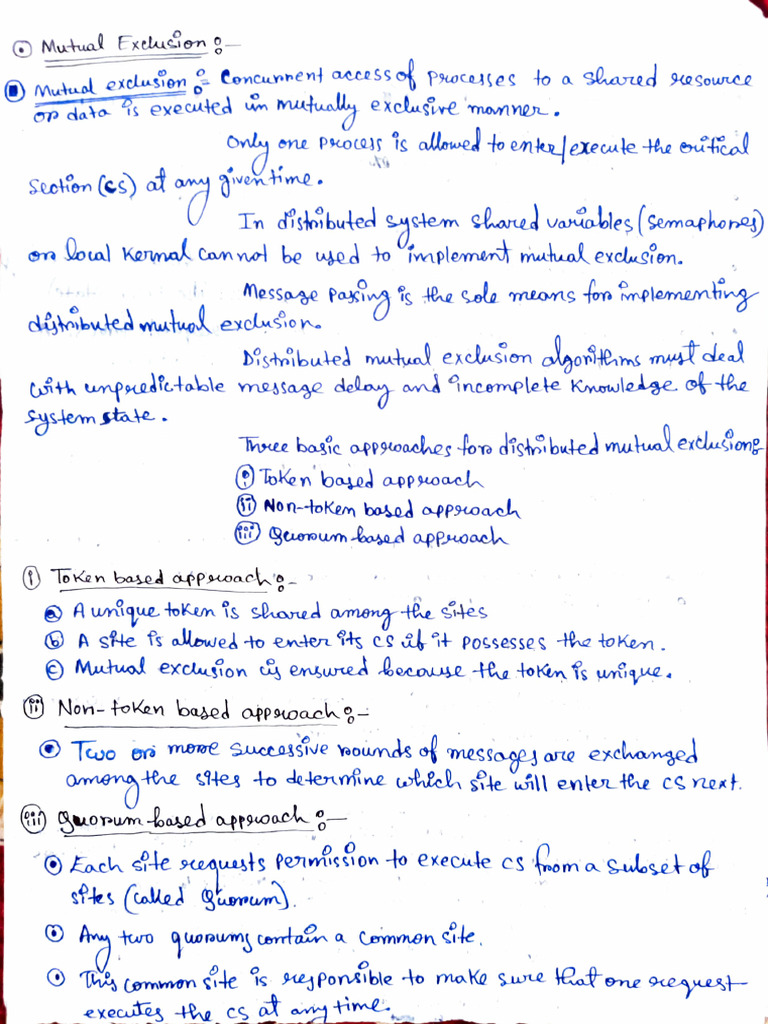 Mutual Exclusion :-
Mutual exclusion :- Concurrent access of processes to a shared resource
or data is executed in mutually exclusive manner.
Only one process is allowed to enter/execute the critical
section (cs) at any given time.
In distributed system shared variables (semaphores)
or local kernal cannot be used to implement mutual exclusion.
Message passing is the sole means for implementing
distributed mutual exclusion.
Distributed mutual exclusion algorithms must deal
with unpredictable message delay and incomplete knowledge of the
system state.
Three basic approaches for distributed mutual exclusion:
(i) Token based approach
(ii) Non-token based approach
(iii) Quorum based approach
(i) Token based approach :-
(a) A unique token is shared among the sites
(b) A site is allowed to enter its cs if it possesses the token.
(c) Mutual exclusion is ensured because the token is unique.
(ii) Non-token based approach :-
Two or more successive rounds of messages are exchanged
among the sites to determine which site will enter the cs next.
(iii) Quorum based approach :-
Each site requests permission to execute cs from a subset of
sites (called Quorum).
Any two quorums contain a common site.
This common site is responsible to make sure that one request
executes the cs at any time.